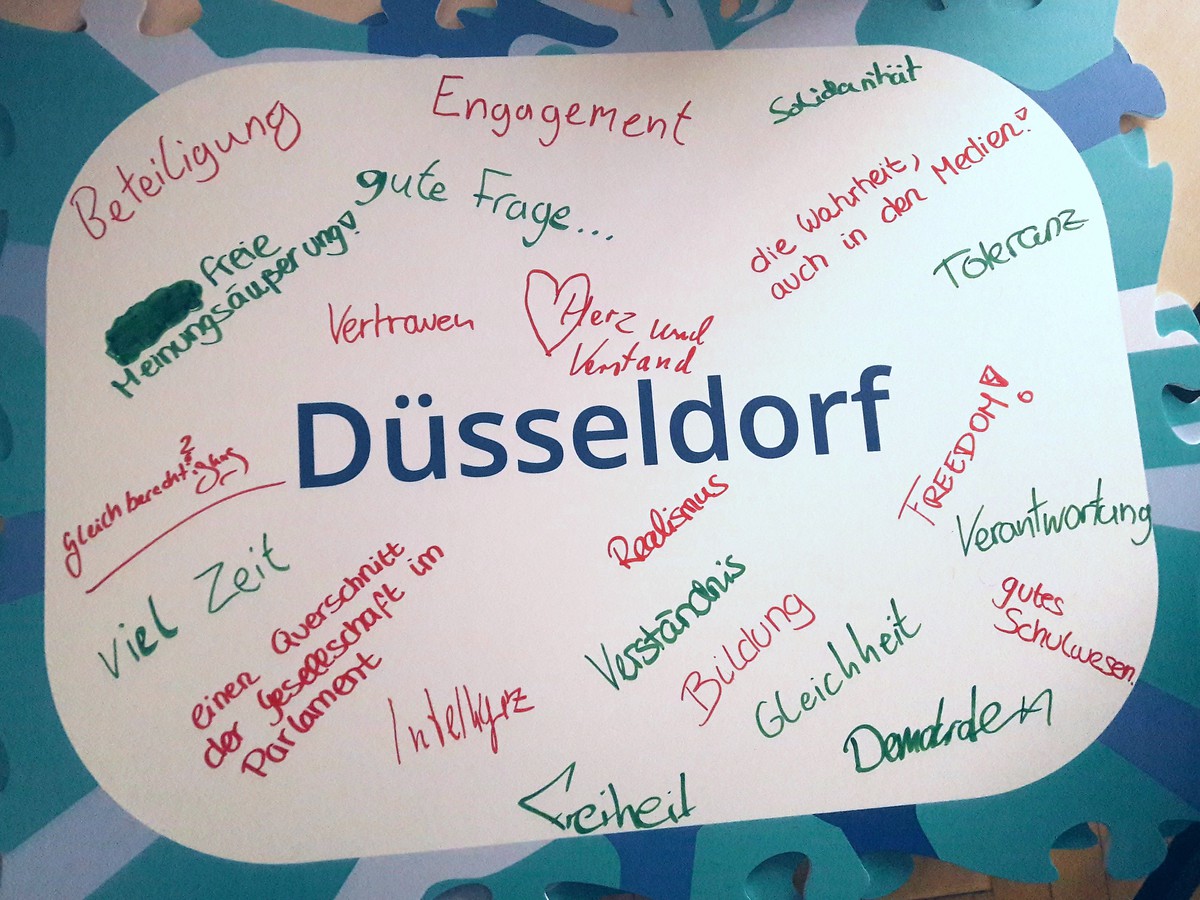 Engagement
Solidarität
Beteiligung
gute Frage...
die Wahrheit,
auch in den Medien!
freie
Meinungsäußerung!
Toleranz
Vertrauen
Herz und
Verstand
Düsseldorf
FREEDOM!
Gleichberechtigung
Realismus
Verantwortung
viel Zeit
einen Querschnitt
der Gesellschaft im
Parlament
Verständnis
Bildung
Gleichheit
gutes
Schulwesen
Intelligenz
Freiheit